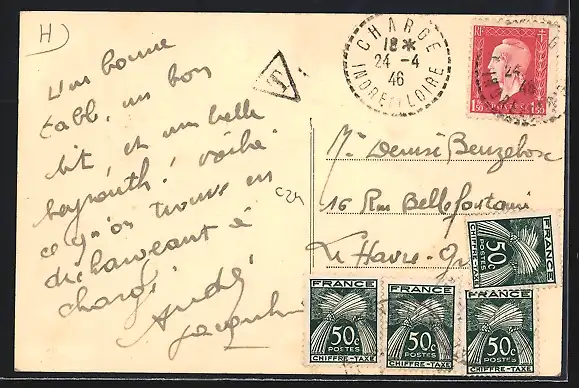 H)
une bonne
table, un bon
lit, et une belle
voilà
ce qu'on trouve en
à
André
Jacqueline
T
CHARGE
18 *
24 - 4
46
INDRE ET LOIRE
RF
1f50 1f50
24
46
Denise
16 Rue Bellefontaine
Le Havre
C24
FRANCE
50c
POSTES
CHIFFRE-TAXE
FRANCE
50c
POSTES
CHIFFRE-TAXE
FRANCE
50c
POSTES
CHIFFRE-TAXE
FRANCE
50c
POSTES
CHIFFRE-TAXE